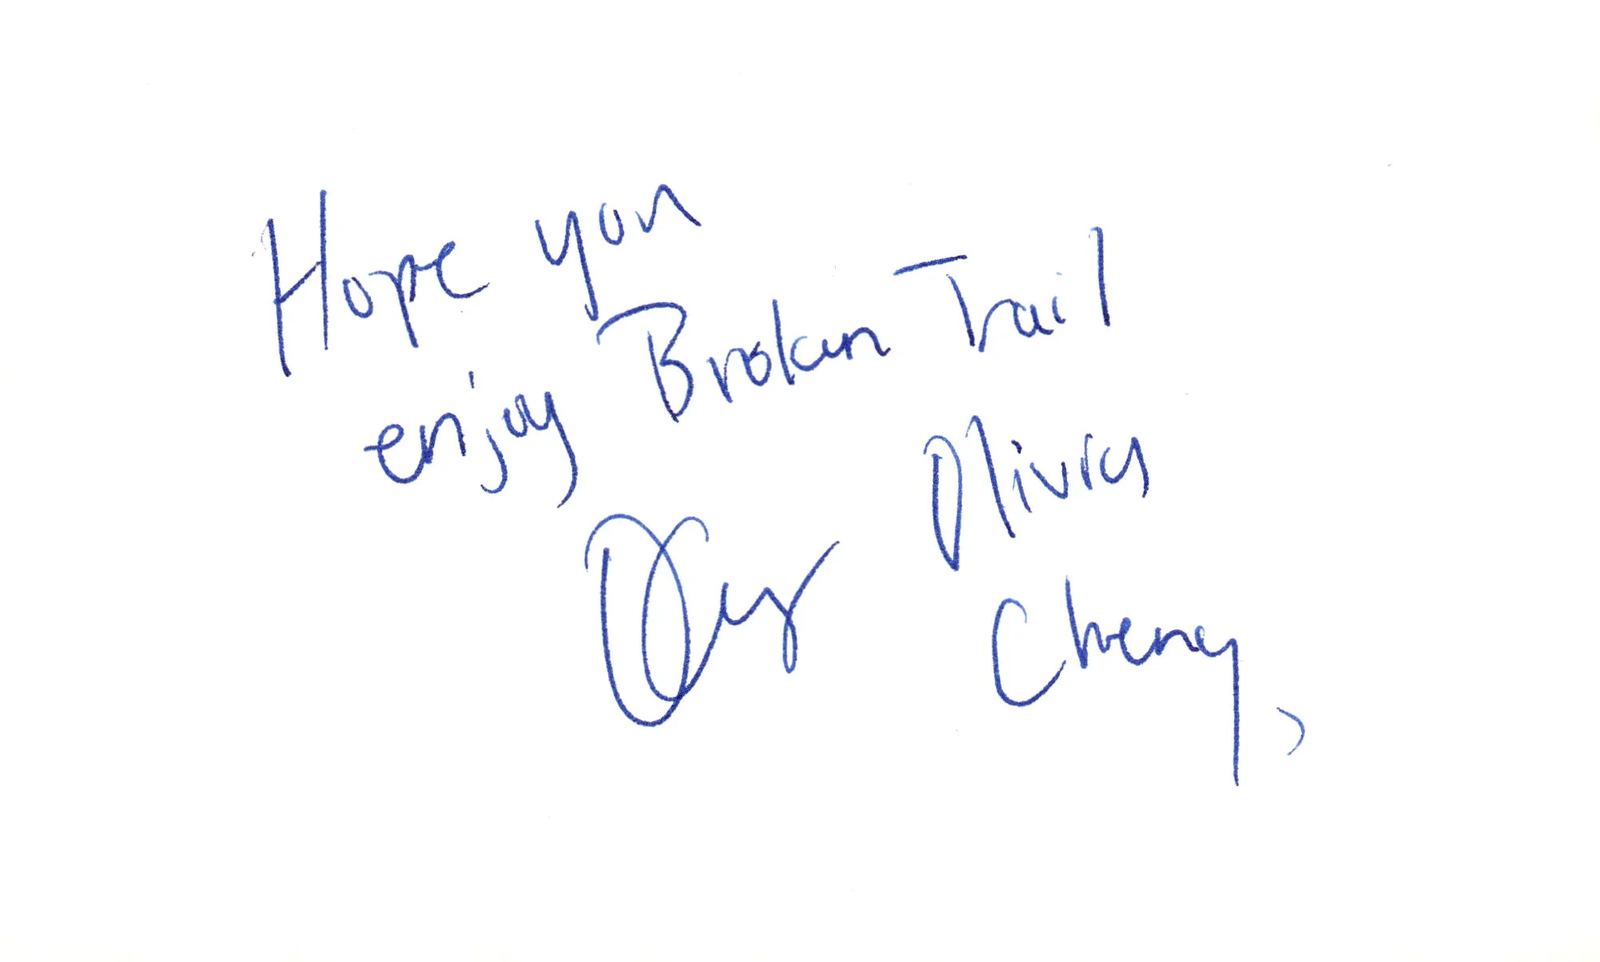 Hope you
enjoy Broken Trail
Olivia
Cheng,